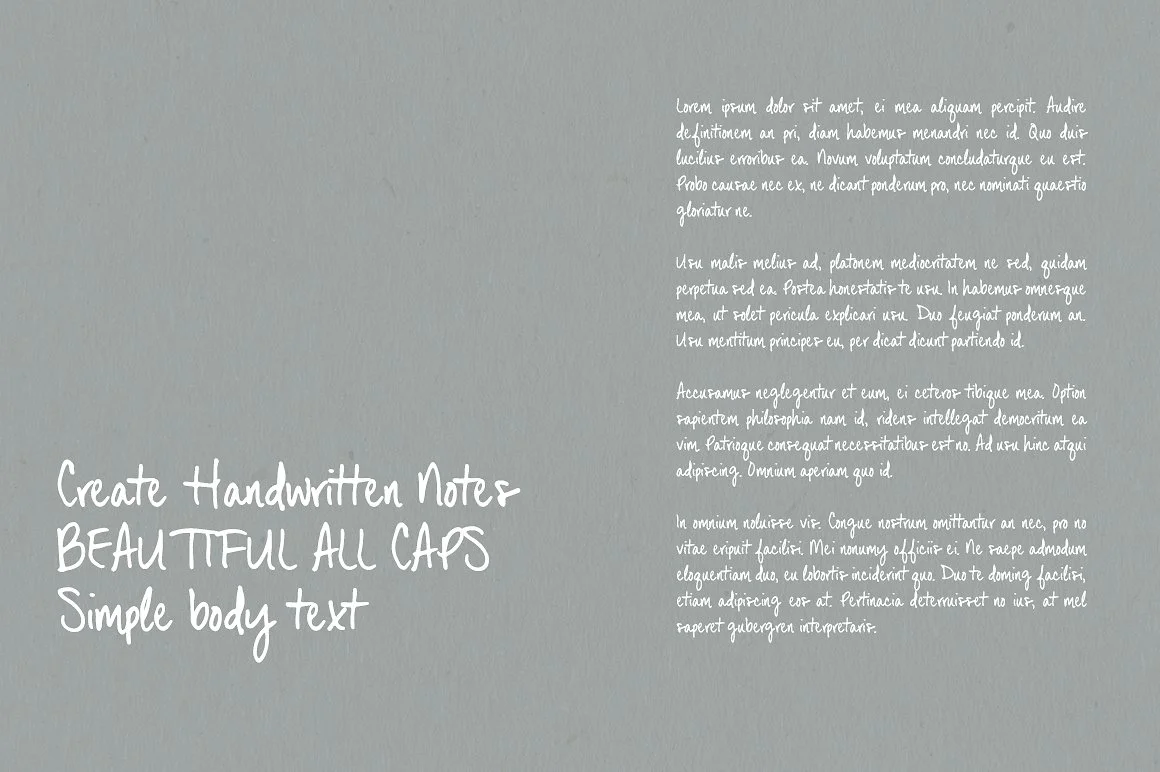 Create Handwritten Notes
BEAUTIFUL ALL CAPS
Simple body text
Lorem ipsum dolor sit amet, ei mea aliquam percipit. Audire
definitionem an pri, diam habemus menandri nec id. Quo duis
lucilius erroribus ea. Novum voluptatum concludaturque eu est.
Probo causae nec ex, ne dicant ponderum pro, nec nominati quaestio
gloriatur ne.
Usu malis melius ad, platonem mediocritatem ne sed, quidam
perpetua sed ea. Postea honestatis te usu. In habemus omnesque
mea, ut solet pericula explicari usu. Duo feugiat ponderum an.
Usu mentitum principes eu, per dicat dicunt partiendo id.
Accusamus neglegentur et eum, ei ceteros tibique mea. Option
sapientem philosophia nam id, ridens intellegat democritum ea
vim. Patrioque consequat necessitatibus est no. Ad usu hinc atqui
adipiscing. Omnium aperiam quo id.
In omnium noluisse vis. Congue nostrum omittantur an nec, pro no
vitae eripuit facilisi. Mei nonumy officiis ei. Ne saepe admodum
eloquentiam duo, eu lobortis inciderint quo. Duo te doming facilisi,
etiam adipiscing eos at. Pertinacia deterruisset no ius, at mel
saperet gubergren interpretaris.